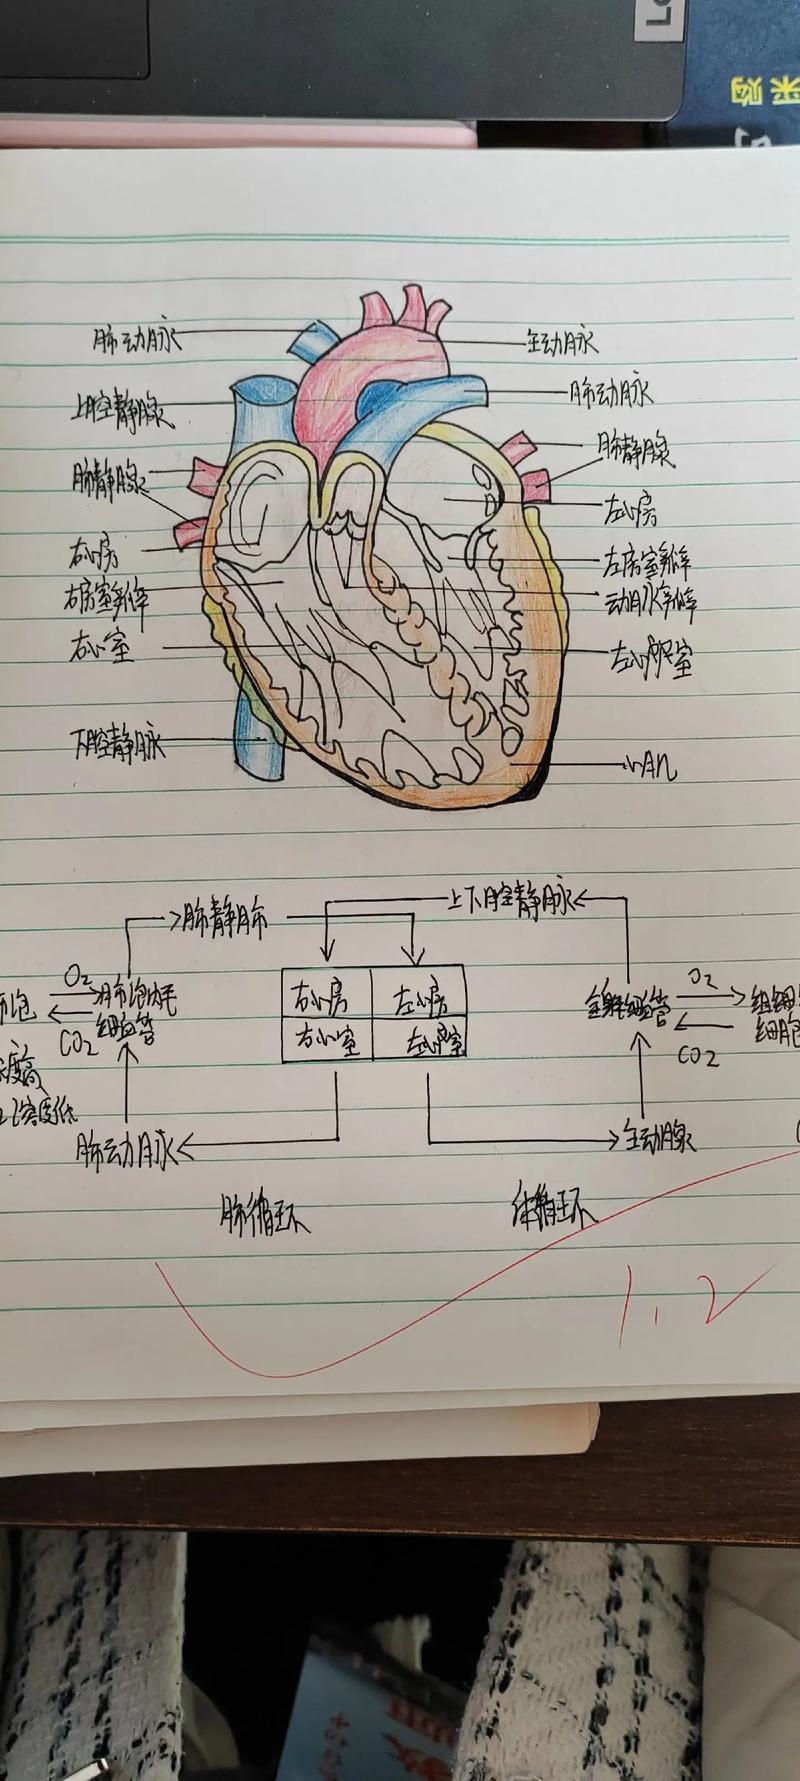 采购
肺动脉
主动脉
上腔静脉
肺动脉
肺静脉
肺静脉
左心房
右心房
左房室瓣
右房室瓣
动脉瓣
右心室
左心室
下腔静脉
心肌
肺静脉
上下腔静脉
O₂
肺泡内毛
细血管
CO₂
右心房
左心房
右心室
左心室
全身细血管
O₂
CO₂
细胞
度高
浓度低
肺动脉
主动脉
肺循环
体循环
1.2